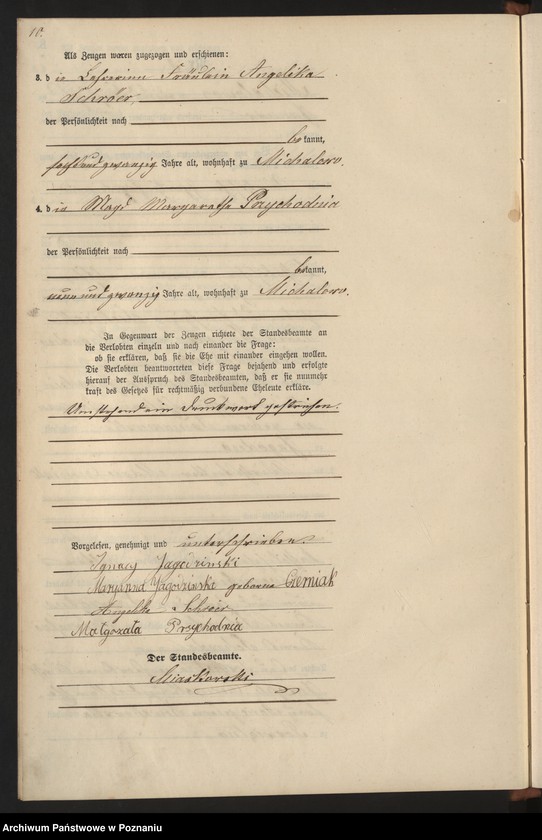 10.
Als Zeugen waren zugezogen und erschienen:
3. die Lehrerin Fräulein Angelika
Schröer,
der Persönlichkeit nach
bekannt,
sechsundzwanzig Jahre alt, wohnhaft zu Michalowo.
4. die Magd Margarethe Przychodnia
der Persönlichkeit nach
bekannt,
neunundzwanzig Jahre alt, wohnhaft zu Michalowo.
In Gegenwart der Zeugen richtete der Standesbeamte an
die Verlobten einzeln und nach einander die Frage:
ob sie erklären, daß sie die Ehe mit einander eingehen wollen.
Die Verlobten beantworteten diese Frage bejahend und erfolgte
hierauf der Ausspruch des Standesbeamten, daß er sie nunmehr
kraft des Gesetzes für rechtmäßig verbundene Eheleute erkläre.
Umstehend ein Druckwort gestrichen.
Vorgelesen, genehmigt und unterschrieben.
Ignacy Jagodzinski
Maryanna Jagodzinska geborene Czerniak
Angelika Schröer
Małgorzata Przychodnia
Der Standesbeamte.
Archiwum Państwowe w Poznaniu